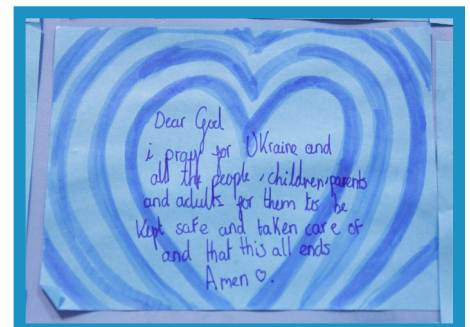 Dear God
i pray for UKraine and
all the people, children, parents
and adults for them to be
Kept safe and taken care of
and that this all ends
Amen ♡.